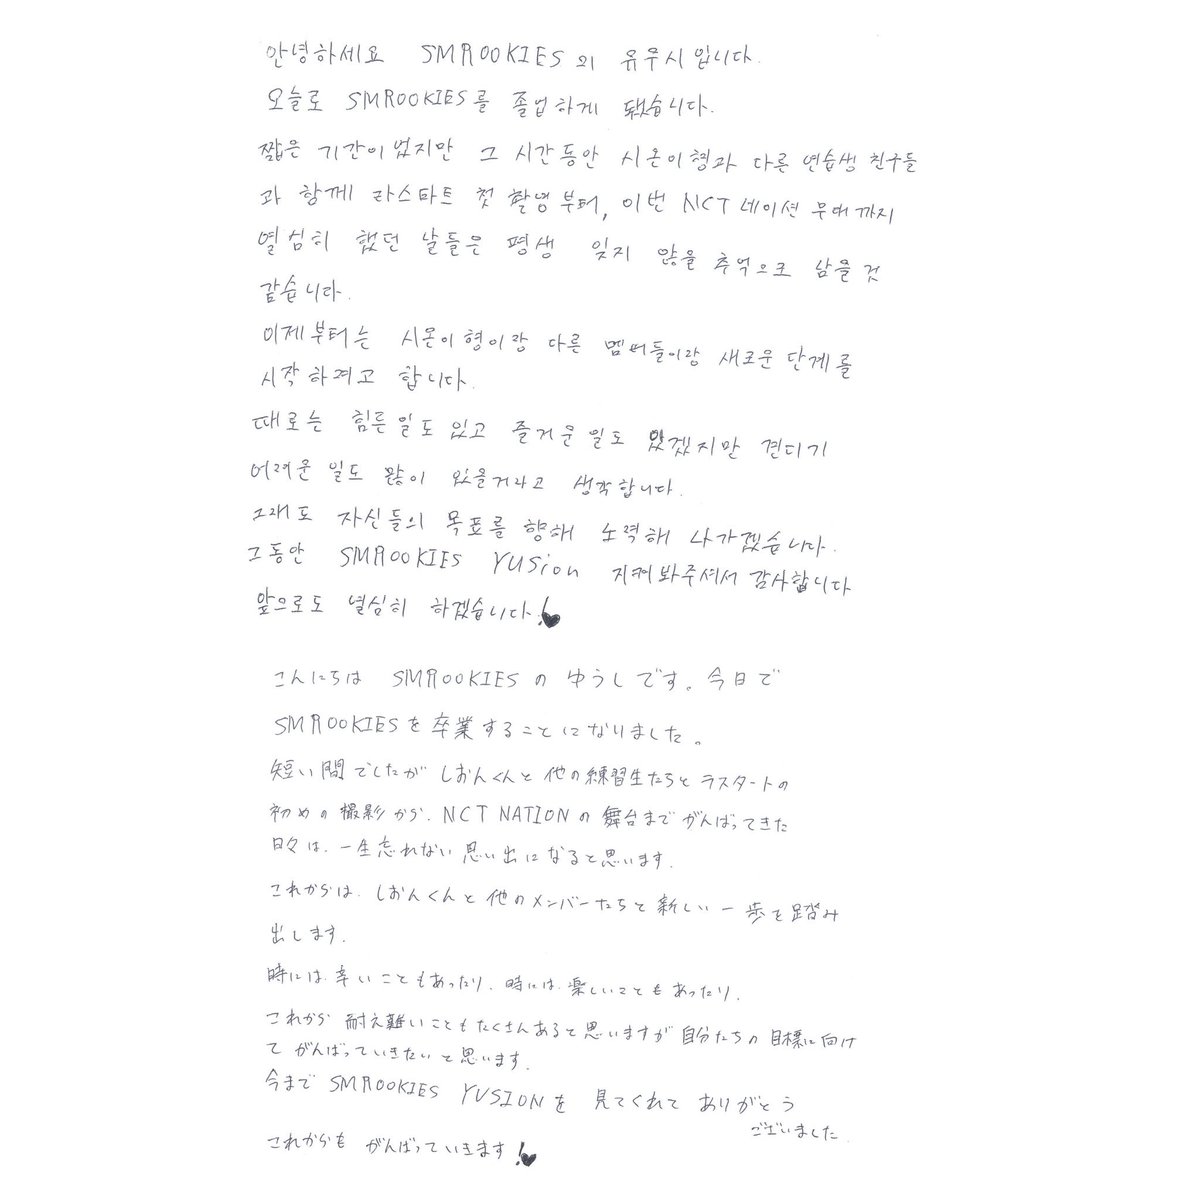 안녕하세요 SMROOKIES의 유우시입니다.
오늘로 SMROOKIES를 졸업하게 됐습니다.
짧은 기간이었지만 그 시간동안 시온이형과 다른 연습생 친구들
과 함께 라스타트 첫 촬영부터, 이번 NCT 네이션 무대까지
열심히 했던 날들은 평생 잊지 않을 추억으로 남을것
같습니다.
이제부터는 시온이형이랑 다른 멤버들이랑 새로운 단계를
시작하려고 합니다.
때로는 힘든일도 있고 즐거운일도 있겠지만 견디기
어려운 일도 많이 있을거라고 생각합니다.
그래도 자신들의 목표를 향해 노력해 나가겠습니다.
그동안 SMROOKIES YUSion 지켜봐주셔서 감사합니다
앞으로도 열심히 하겠습니다!♥
こんにちは SMROOKIESの ゆうしです。今日で
SMROOKIESを卒業することになりました。
短い間でしたが しおんくんと他の練習生たちとラスタートの
初めの撮影から、NCT NATIONの舞台までがんばってきた
日々は、一生忘れない思い出になると思います。
これからは、しおんくんと他のメンバーたちと新しい一歩を踏み
出します。
時には、辛いこともあったり、時には、楽しいこともあったり、
これから耐え難いこともたくさんあると思いますが自分たちの目標に向け
てがんばっていきたいと思います。
今まで SMROOKIES YUSIONを 見てくれて ありがとう
ございました
これからもがんばっていきます!♥